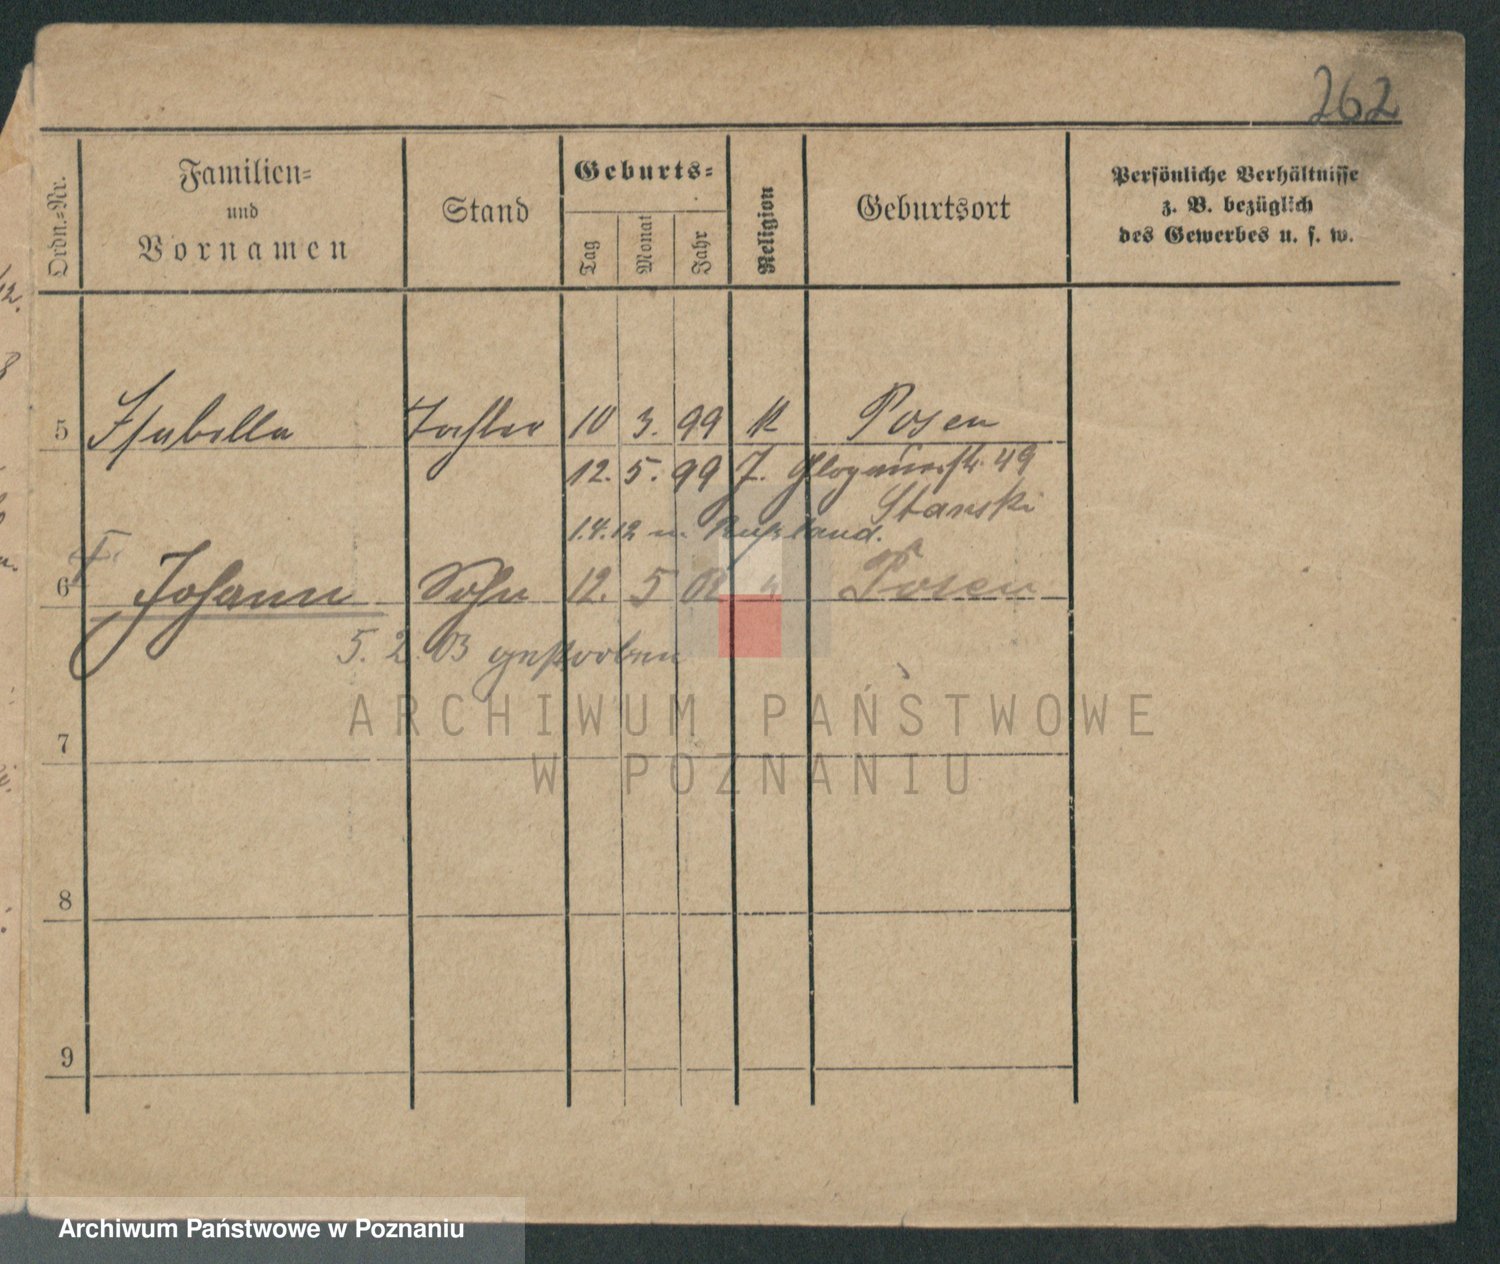 262
Ordn.=Nr.
Familien=
und
Vornamen
Stand
Geburts=
Tag
Monat
Jahr
Religion
Geburtsort
Persönliche Verhältnisse
z. B. bezüglich
des Gewerbes u. s. w.
5 Isabella Tochter 10 3. 99 K Posen
12. 5. 99 J. Glogauerstr. 49
Stanski
1.4.12 n. Russland.
6 Johann Sohn 12. 5 Posen
5. 2. 03 gestorben
7
8
9
ARCHIWUM PAŃSTWOWE
W POZNANIU
Archiwum Państwowe w Poznaniu